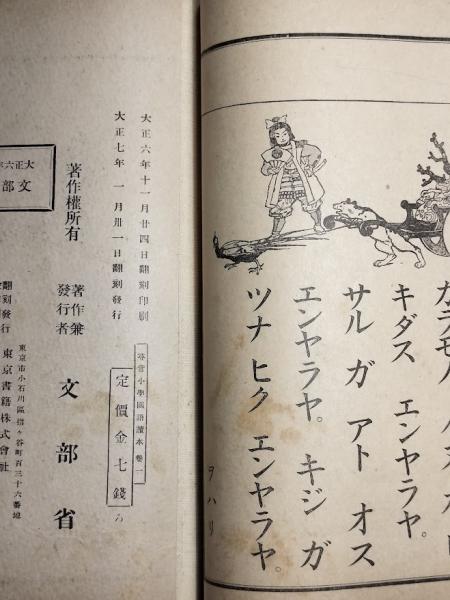 キダス エンヤラヤ。
サル ガ アト オス
エンヤラヤ。キジ ガ
ツナ ヒク エンヤラヤ。
ヲハリ
大正六年十一月廿四日翻刻印刷
大正七年 一月卅一日翻刻發行
尋常小學國語讀本 卷一
定價金七錢
著作權所有
著作兼
發行者
文部省
大正六年
文部
翻刻發行
東京市小石川區指ヶ谷町百三十六番地
東京書籍株式會社